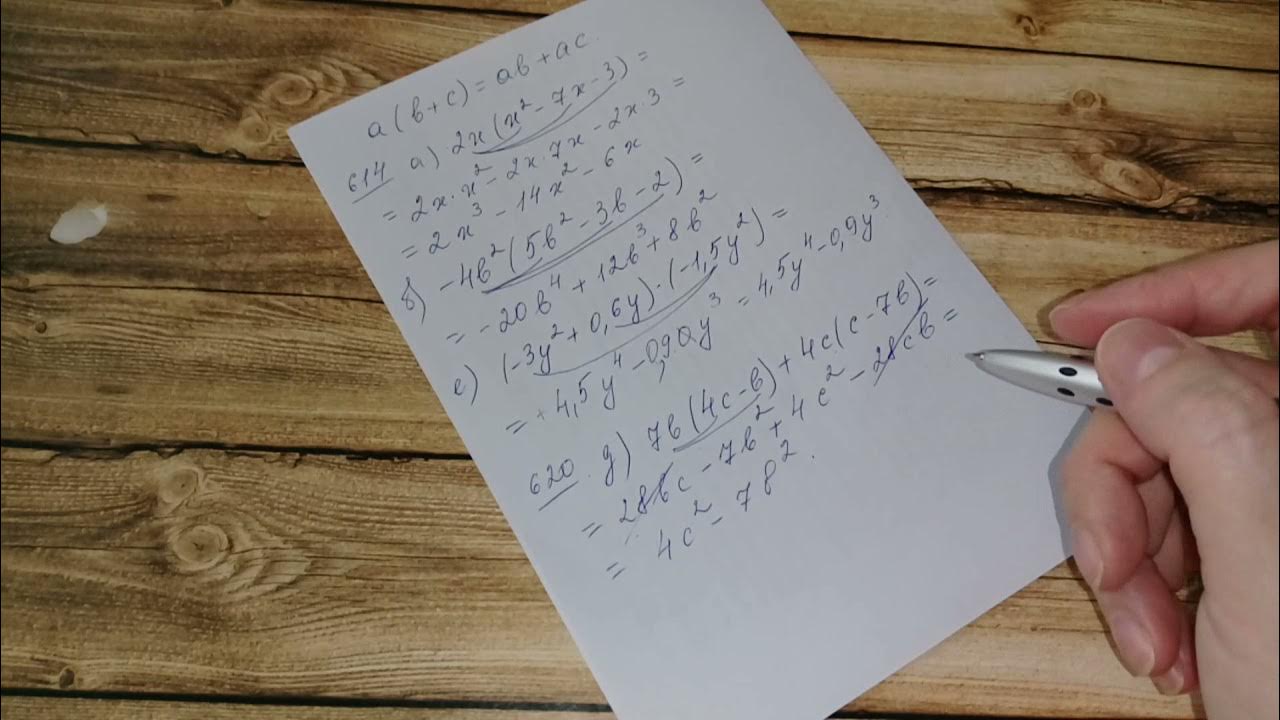 a(b+c)=ab+ac.
614 а) 2x(x²-7x-3)=
= 2x·x²-2x·7x-2x·3=
= 2x³-14x²-6x
б) -4b²(5b²-3b-2)=
= -20b⁴+12b³+8b²
е) (-3y²+0,6y)·(-1,5y²)=
= +4,5y⁴-0,90y³=4,5y⁴-0,9y³.
620. д) 7b(4c-b)+4c(c-7b)=
= 28bc-7b²+4c²-28cb=
= 4c²-7b².